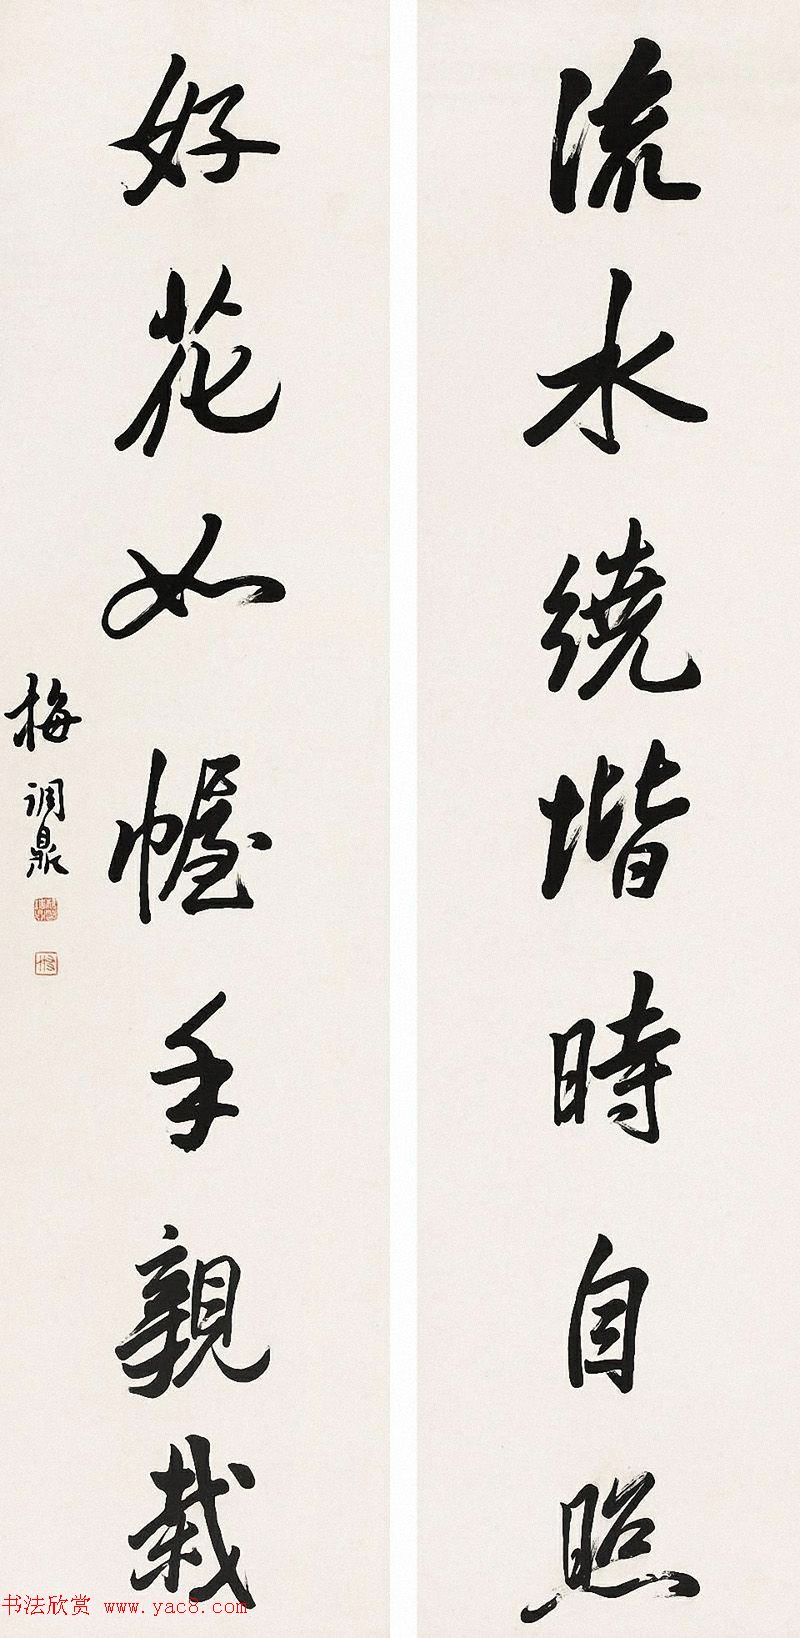 流水繞堦時自照
好花如幄手親栽
梅調鼎
书法欣赏 www.yac8.com